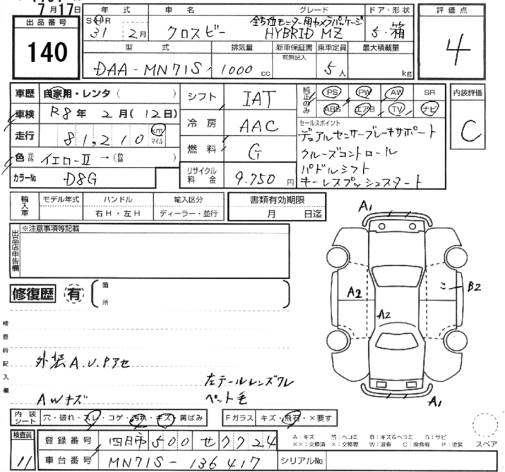 7月17
出品番号 140
年式 SHR 31 2月
クロスビー
グレード 全方位モニター用カメラパッケージ
HYBRID MZ
ドア・形状 5・箱
評価点 4
型式 DAA-MN71S
排気量 1000 cc
新車保証書 有無記入
乗車定員 5人
最大積載量 kg
車歴 自家用・レンタ( )
シフト IAT
純正のみ PS PW AW SR
ABS エアB TV ナビ
内装評価 C
車検 R8年 2月(12日)
冷房 AAC
セールスポイント
デュアルセンサーブレーキサポート
走行 81,210 km マイル
クルーズコントロール
燃料 G
パドルシフト
色 イエローII →( )
キーレスプッシュスタート
カラーNo D8G
リサイクル料金 9.750 円
輸入車 モデル年式 ハンドル 右H・左H 輸入区分 ディーラー・並行
書類有効期限 月 日迄
出品店申告欄 ※注意事項等記載
A1
修復歴 有 箇所
A2
A2
B2
検査員記入欄
外装A.U.Pアセ
左テールレンズワレ
AWキズ
ペット毛
A1
内装シート 穴・破れ・スレ・コゲ・汚れ・キズ・黄ばみ
Fガラス キズ・飛石・×要す
A:キズ
スペア
検査員 11
登録番号 四日市500せ7724
車台番号 MN71S-136417
シリアルNo